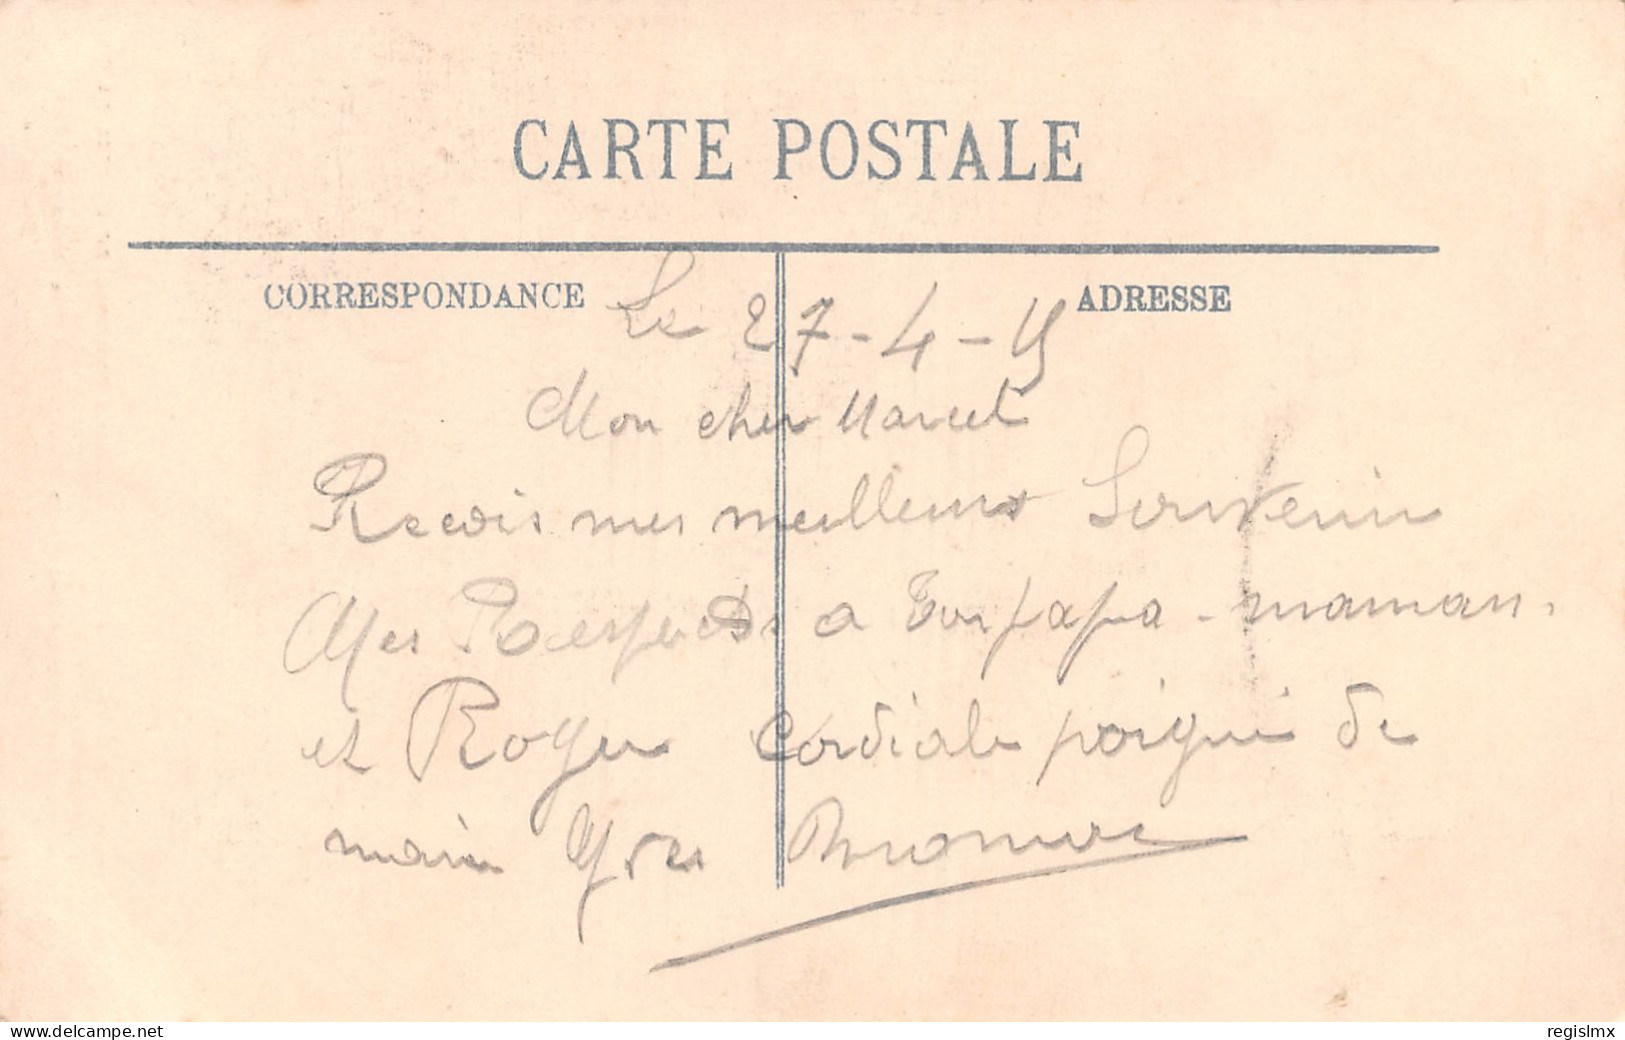 CARTE POSTALE
CORRESPONDANCE
ADRESSE
Le 27-4-15
Mon cher Marcel
Recois mes meilleurs Souvenir
Mes Respects a ton papa - maman.
et Roger Cordiale poigné de
main Yves
www.delcampe.net
regislmx